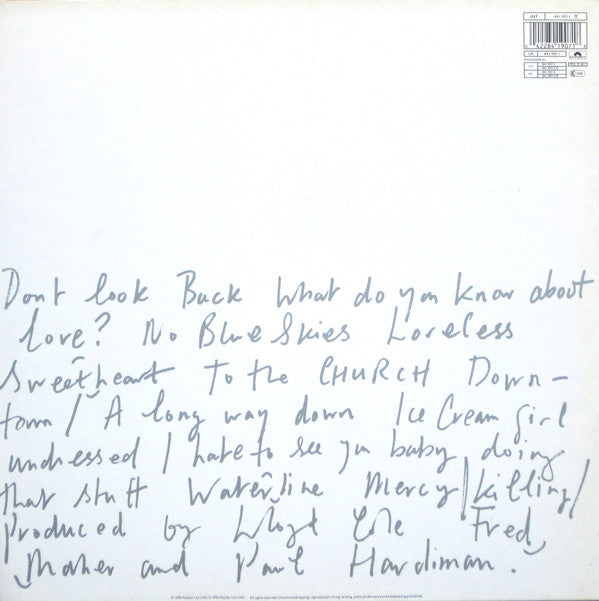 INT 841 907-1
0 42284 19071
Dont look Back What do you know about
love? No Blue Skies Loveless
Sweetheart To the CHURCH Down-
town/ A long way down Ice Cream girl
undressed I hate to see you baby doing
that stuff Waterline Mercy/killing/
produced by Lloyd Cole Fred
Maher and Paul Hardiman.